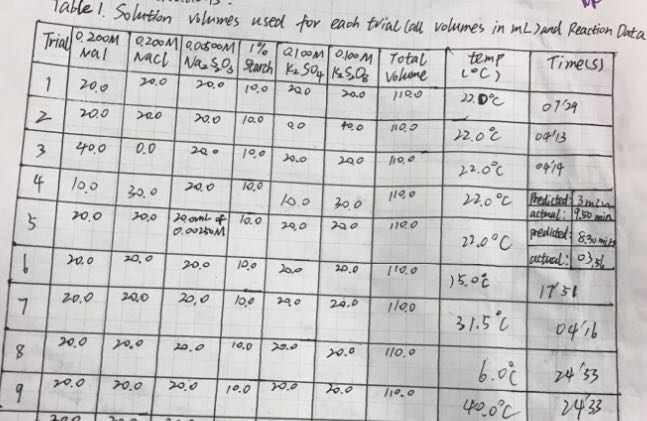 Table 1. Solution volumes used for each trial (all volumes in mL) and Reaction Data
Trial 0.200M NaI 0.200M NaCl 0.00500M Na₂S₂O₃ 1% Starch 0.100M K₂SO₄ 0.100M K₂S₂O₈ Total Volume temp (°C) Time(s)
1 20.0 20.0 20.0 10.0 20.0 20.0 110.0 22.0°C 07'29
2 20.0 20.0 20.0 10.0 0.0 40.0 110.0 22.0°C 04'13
3 40.0 0.0 20.0 10.0 20.0 20.0 110.0 22.0°C 04'14
4 10.0 30.0 20.0 10.0 10.0 30.0 110.0 22.0°C Predicted: 3 min
actual: 9.50 min
5 20.0 20.0 20.0mL of 0.00250M 10.0 20.0 20.0 110.0 22.0°C predicted: 8.30 min
actual: 03,56
6 20.0 20.0 20.0 10.0 20.0 20.0 110.0 15.0°C 17'51
7 20.0 20.0 20.0 10.0 20.0 20.0 110.0 31.5°C 04'16
8 20.0 20.0 20.0 10.0 20.0 20.0 110.0 6.0°C 24'33
9 20.0 20.0 20.0 10.0 20.0 20.0 110.0 40.0°C 24'33